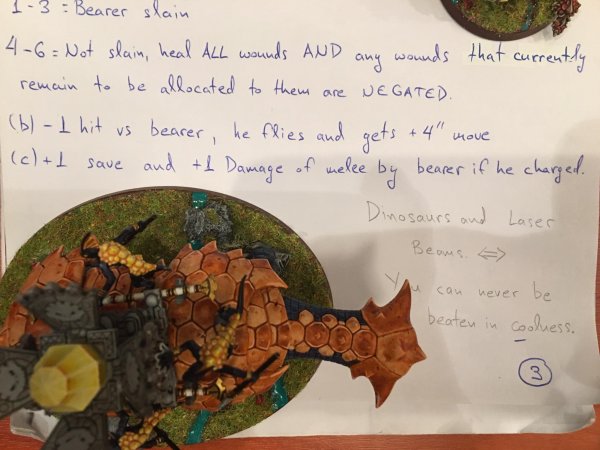 1-3 = Bearer slain
4-6 = Not slain, heal ALL wounds AND any wounds that currently
remain to be allocated to them are NEGATED.
(b) -1 hit vs bearer, he flies and gets +4" move
(c) +1 save and +1 Damage of melee by bearer if he charged.
Dinosaurs and Laser
Beams. ⇔
You can never be
beaten in coolness.
3